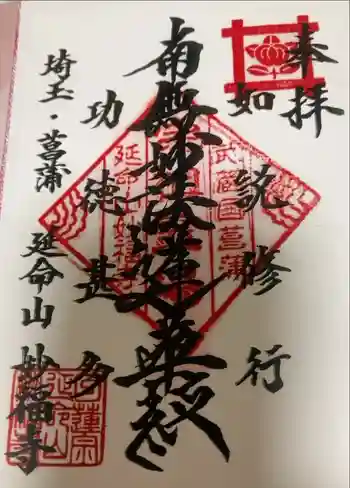 奉拝
如説修行
南無妙法蓮華経
功徳甚多
埼玉・菖蒲 延命山 妙福寺
武蔵国菖蒲
延命山妙福寺
日蓮宗